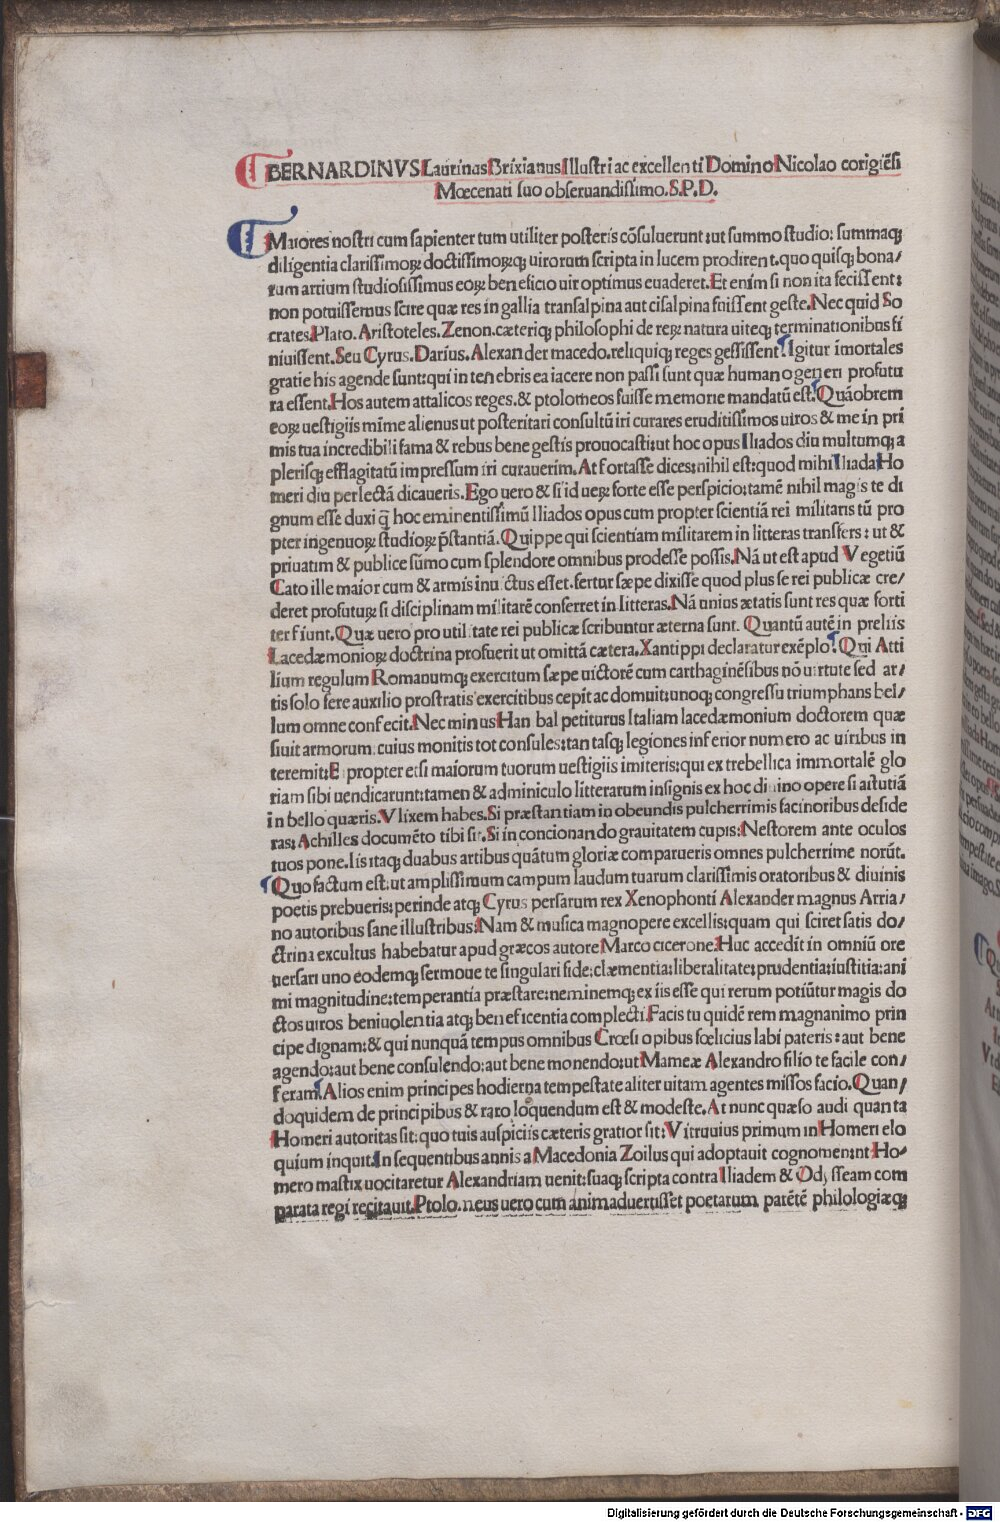 BERNARDINVS Laurinas Brixianus Illustri ac excellenti Domino Nicolao corigiēsi
Mœcenati suo obseruandissimo.S.P.D.
Maiores nostri cum sapienter tum utiliter posteris cōsuluerunt:ut summo studio: summaqꝫ
diligentia clarissimoꝝ doctissimoꝝqꝫ uirorum scripta in lucem prodirent.quo quisqꝫ bona/
rum artium studiosissimus eoꝝ beneficio uir optimus euaderet.Et enim si non ita fecissent:
non potuissemus scire quæ res in gallia transalpina aut cisalpina fuissent geste.Nec quid So
crates.Plato.Aristoteles.Zenon.cæteriqꝫ philosophi de reꝝ natura uiteqꝫ terminationibus fi
niuissent.Seu Cyrus.Darius.Alexander macedo.reliquiqꝫ reges gessissent.Igitur īmortales
gratie his agende sunt:qui in tenebris ea iacere non passi sunt quæ humano generi profutu
ra essent.Hos autem attalicos reges.& ptolomeos fuisse memorie mandatū est.Quāobrem
eoꝝ uestigiis mīme alienus ut posteritari consultū iri curares eruditissimos uiros & me in pri
mis tua incredibili fama & rebus bene gestis prouocasti:ut hoc opus Iliados diu multumqꝫ a
plerisqꝫ efflagitatū impressum iri curauerim.At fortasse dices:nihil est:quod mihi Iliada Ho
meri diu perlectā dicaueris.Ego uero & si id ueꝝ forte esse perspicio:tamē nihil magis te di
gnum esse duxi q̄ hoc eminentissimū Iliados opus cum propter scientiā rei militaris tū pro
pter ingenuoꝝ studioꝝ p̄stantiā.Quippe qui scientiam militarem in litteras transfers: ut &
priuatim & publice sūmo cum splendore omnibus prodesse possis.Nā ut est apud Vegetiū
Cato ille maior cum & armis inuictus esset.fertur sæpe dixisse quod plus se rei publicæ cre/
deret profutuꝝ si disciplinam militarē conferret in litteras.Nā unius ætatis sunt res quæ forti
ter fiunt.Quæ uero pro utilitate rei publicæ scribuntur æterna sunt. Quantū autē in preliis
Lacedæmonioꝝ doctrina profuerit ut omittā cætera.Xantippi declaratur exēplo.Qui Atti
lium regulum Romanumqꝫ exercitum sæpe uictorē cum carthaginēsibus nō uirtute sed ar/
tis solo fere auxilio prostratis exercitibus cepit ac domuit:unoqꝫ congressu triumphans bel/
lum omne confecit.Nec minus Hanibal petiturus Italiam lacedæmonium doctorem quæ
siuit armorum:cuius monitis tot consules:tantasqꝫ legiones inferior numero ac uiribus in
teremit:E propter etsi maiorum tuorum uestigiis imiteris:qui ex trebellica immortalē glo
riam sibi uendicarunt:tamen & adminiculo litterarum insignis ex hoc diuino opere si astutiā
in bello quæris.Vlixem habes.Si præstantiam in obeundis pulcherrimis facinoribus deside
ras: Achilles documēto tibi sit.Si in concionando grauitatem cupis:Nestorem ante oculos
tuos pone.Iis itaqꝫ duabus artibus quātum gloriæ comparueris omnes pulcherrime norūt.
Quo factum est:ut amplissimum campum laudum tuarum clarissimis oratoribus & diuinis
poetis prebueris:perinde atqꝫ Cyrus persarum rex Xenophonti Alexander magnus Arria/
no autoribus sane illustribus:Nam & musica magnopere excellis:quam qui sciret satis do/
ctrina excultus habebatur apud græcos autore Marco cicerone:Huc accedit in omniū ore
uersari uno eodemqꝫ sermone te singulari fide:clæmentia:liberalitate:prudentia:iustitia:ani
mi magnitudine:temperantia præstare:neminemqꝫ ex iis esse qui rerum potiūtur magis do
ctos uiros beniuolentia atqꝫ beneficentia complecti.Facis tu quidē rem magnanimo prin
cipe dignam:& qui nunquā tempus omnibus Crœsi opibus fœlicius labi pateris: aut bene
agendo:aut bene consulendo:aut bene monendo:ut Mameæ Alexandro filio te facile con/
feram.Alios enim principes hodierna tempestate aliter uitam agentes missos facio.Quan/
doquidem de principibus & raro loquendum est & modeste.At nunc quæso audi quanta
Homeri autoritas sit: quo tuis auspiciis cæteris gratior sit:Vitruuius primum in Homeri elo
quium inquit.In sequentibus annis a Macedonia Zoilus qui adoptauit cognomen:ut Ho/
mero mastix uocitaretur Alexandriam uenit:suaqꝫ scripta contra Iliadem & Odysseam com
parata regi recitauit.Ptolomeus uero cum animaduertisset poetarum patētē philologiæqꝫ
Digitalisierung gefördert durch die Deutsche Forschungsgemeinschaft - DFG